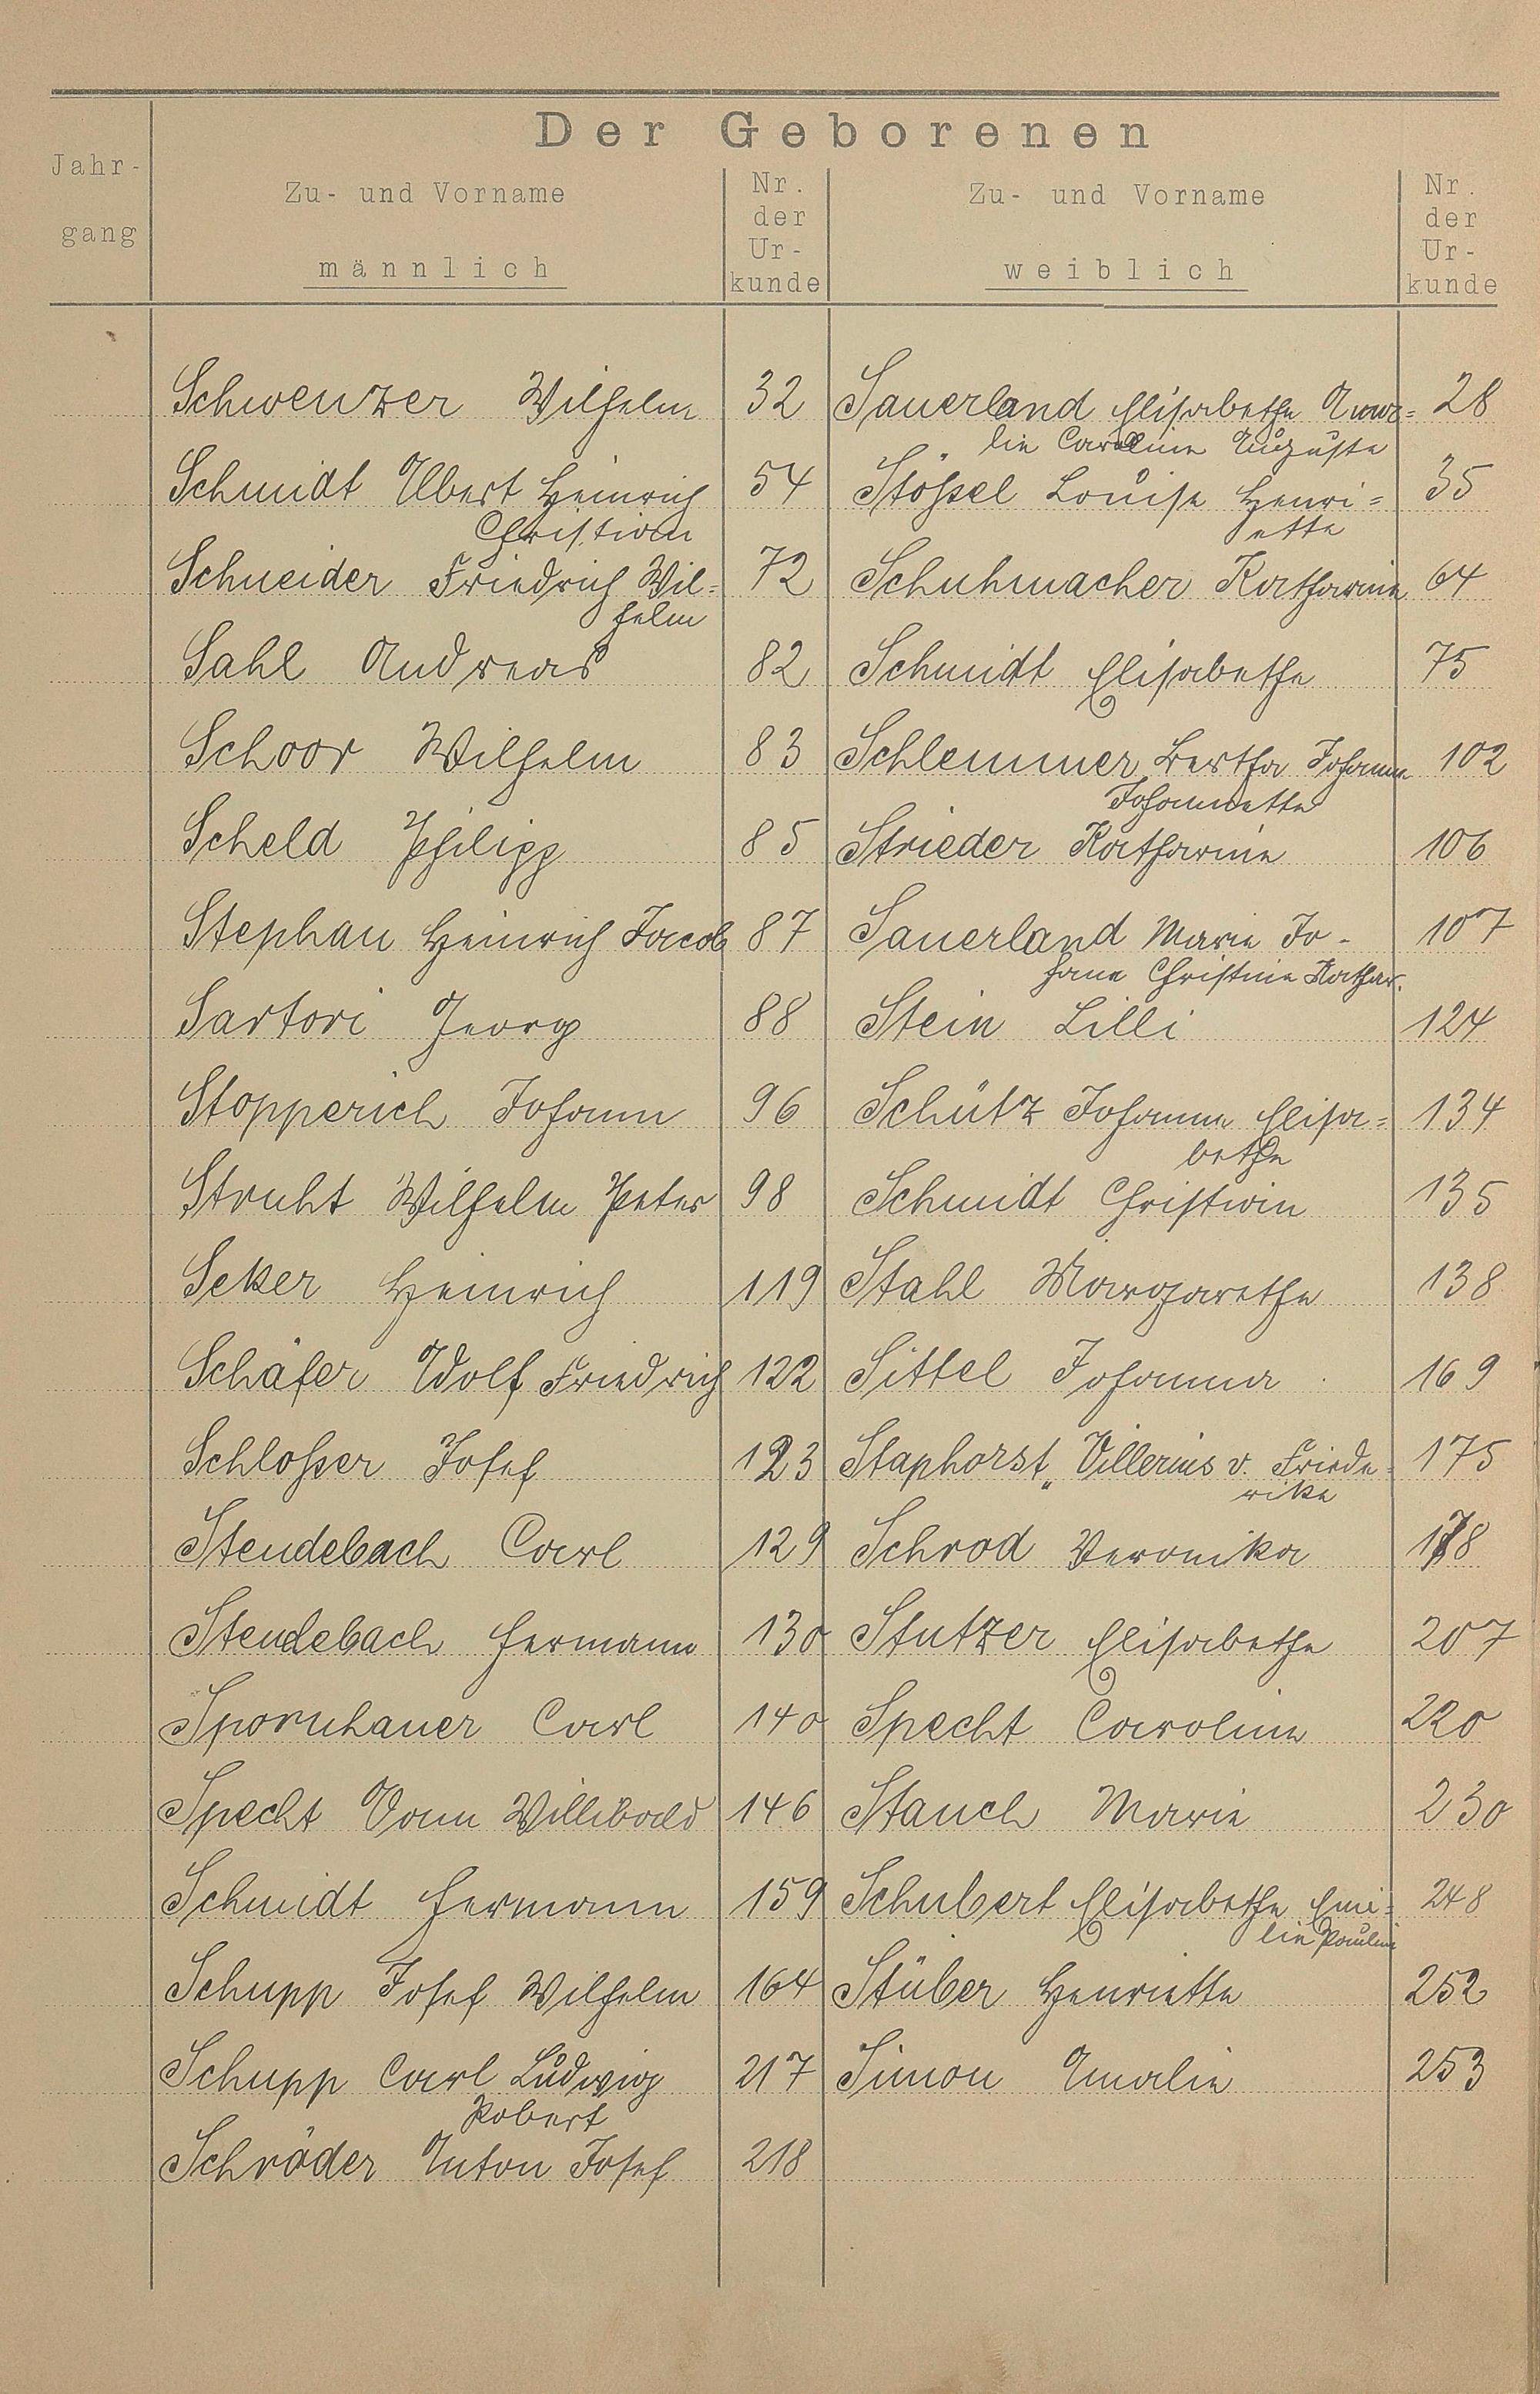 Der Geborenen
Jahr-
gang
Zu- und Vorname
männlich
Nr.
der
Ur-
kunde
Zu- und Vorname
weiblich
Nr.
der
Ur-
kunde
Schwenzer Wilhelm 32 Sauerland Elisabethe Ama= 28
lie Caroline Auguste
Schmidt Albert Heinrich 54 Stößel Louise Henri= 35
Christian ette
Schneider Friedrich Wil= 72 Schuhmacher Katharine 64
helm
Sahl Andreas 82 Schmidt Elisabethe 75
Schoor Wilhelm 83 Schlemmer Bertha Johanne 102
Johannette
Scheld Philipp 85 Strieder Katharine 106
Stephan Heinrich Jacob 87 Sauerland Marie Jo- 107
hane Christine Kathar.
Sartori Georg 88 Stein Lilli 124
Stopperich Johann 96 Schütz Johanne Elisa= 134
bethe
Struht Wilhelm Peter 98 Schmidt Christine 135
Seker Heinrich 119 Stahl Margarethe 138
Schäfer Adolf Friedrich 122 Sittel Johanna 169
Schloßer Josef 123 Staphorst „Villerius v. Friede= 175
rike
Stendebach Carl 129 Schrod Veronika 178
Stendebach Hermann 130 Stutzer Elisabethe 207
Spornhauer Carl 140 Specht Caroline 220
Specht Willibald 146 Stauch Marie 230
Schmidt Hermann 159 Schubert Elisabethe Emi= 248
lie Pauline
Schupp Josef Wilhelm 164 Stüber Henriette 252
Schupp Carl Ludwig 217 Simon Amalie 253
Robert
Schröder Anton Josef 218